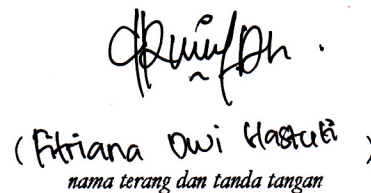 (Fitriana Dwi Hastuti)
nama terang dan tanda tangan